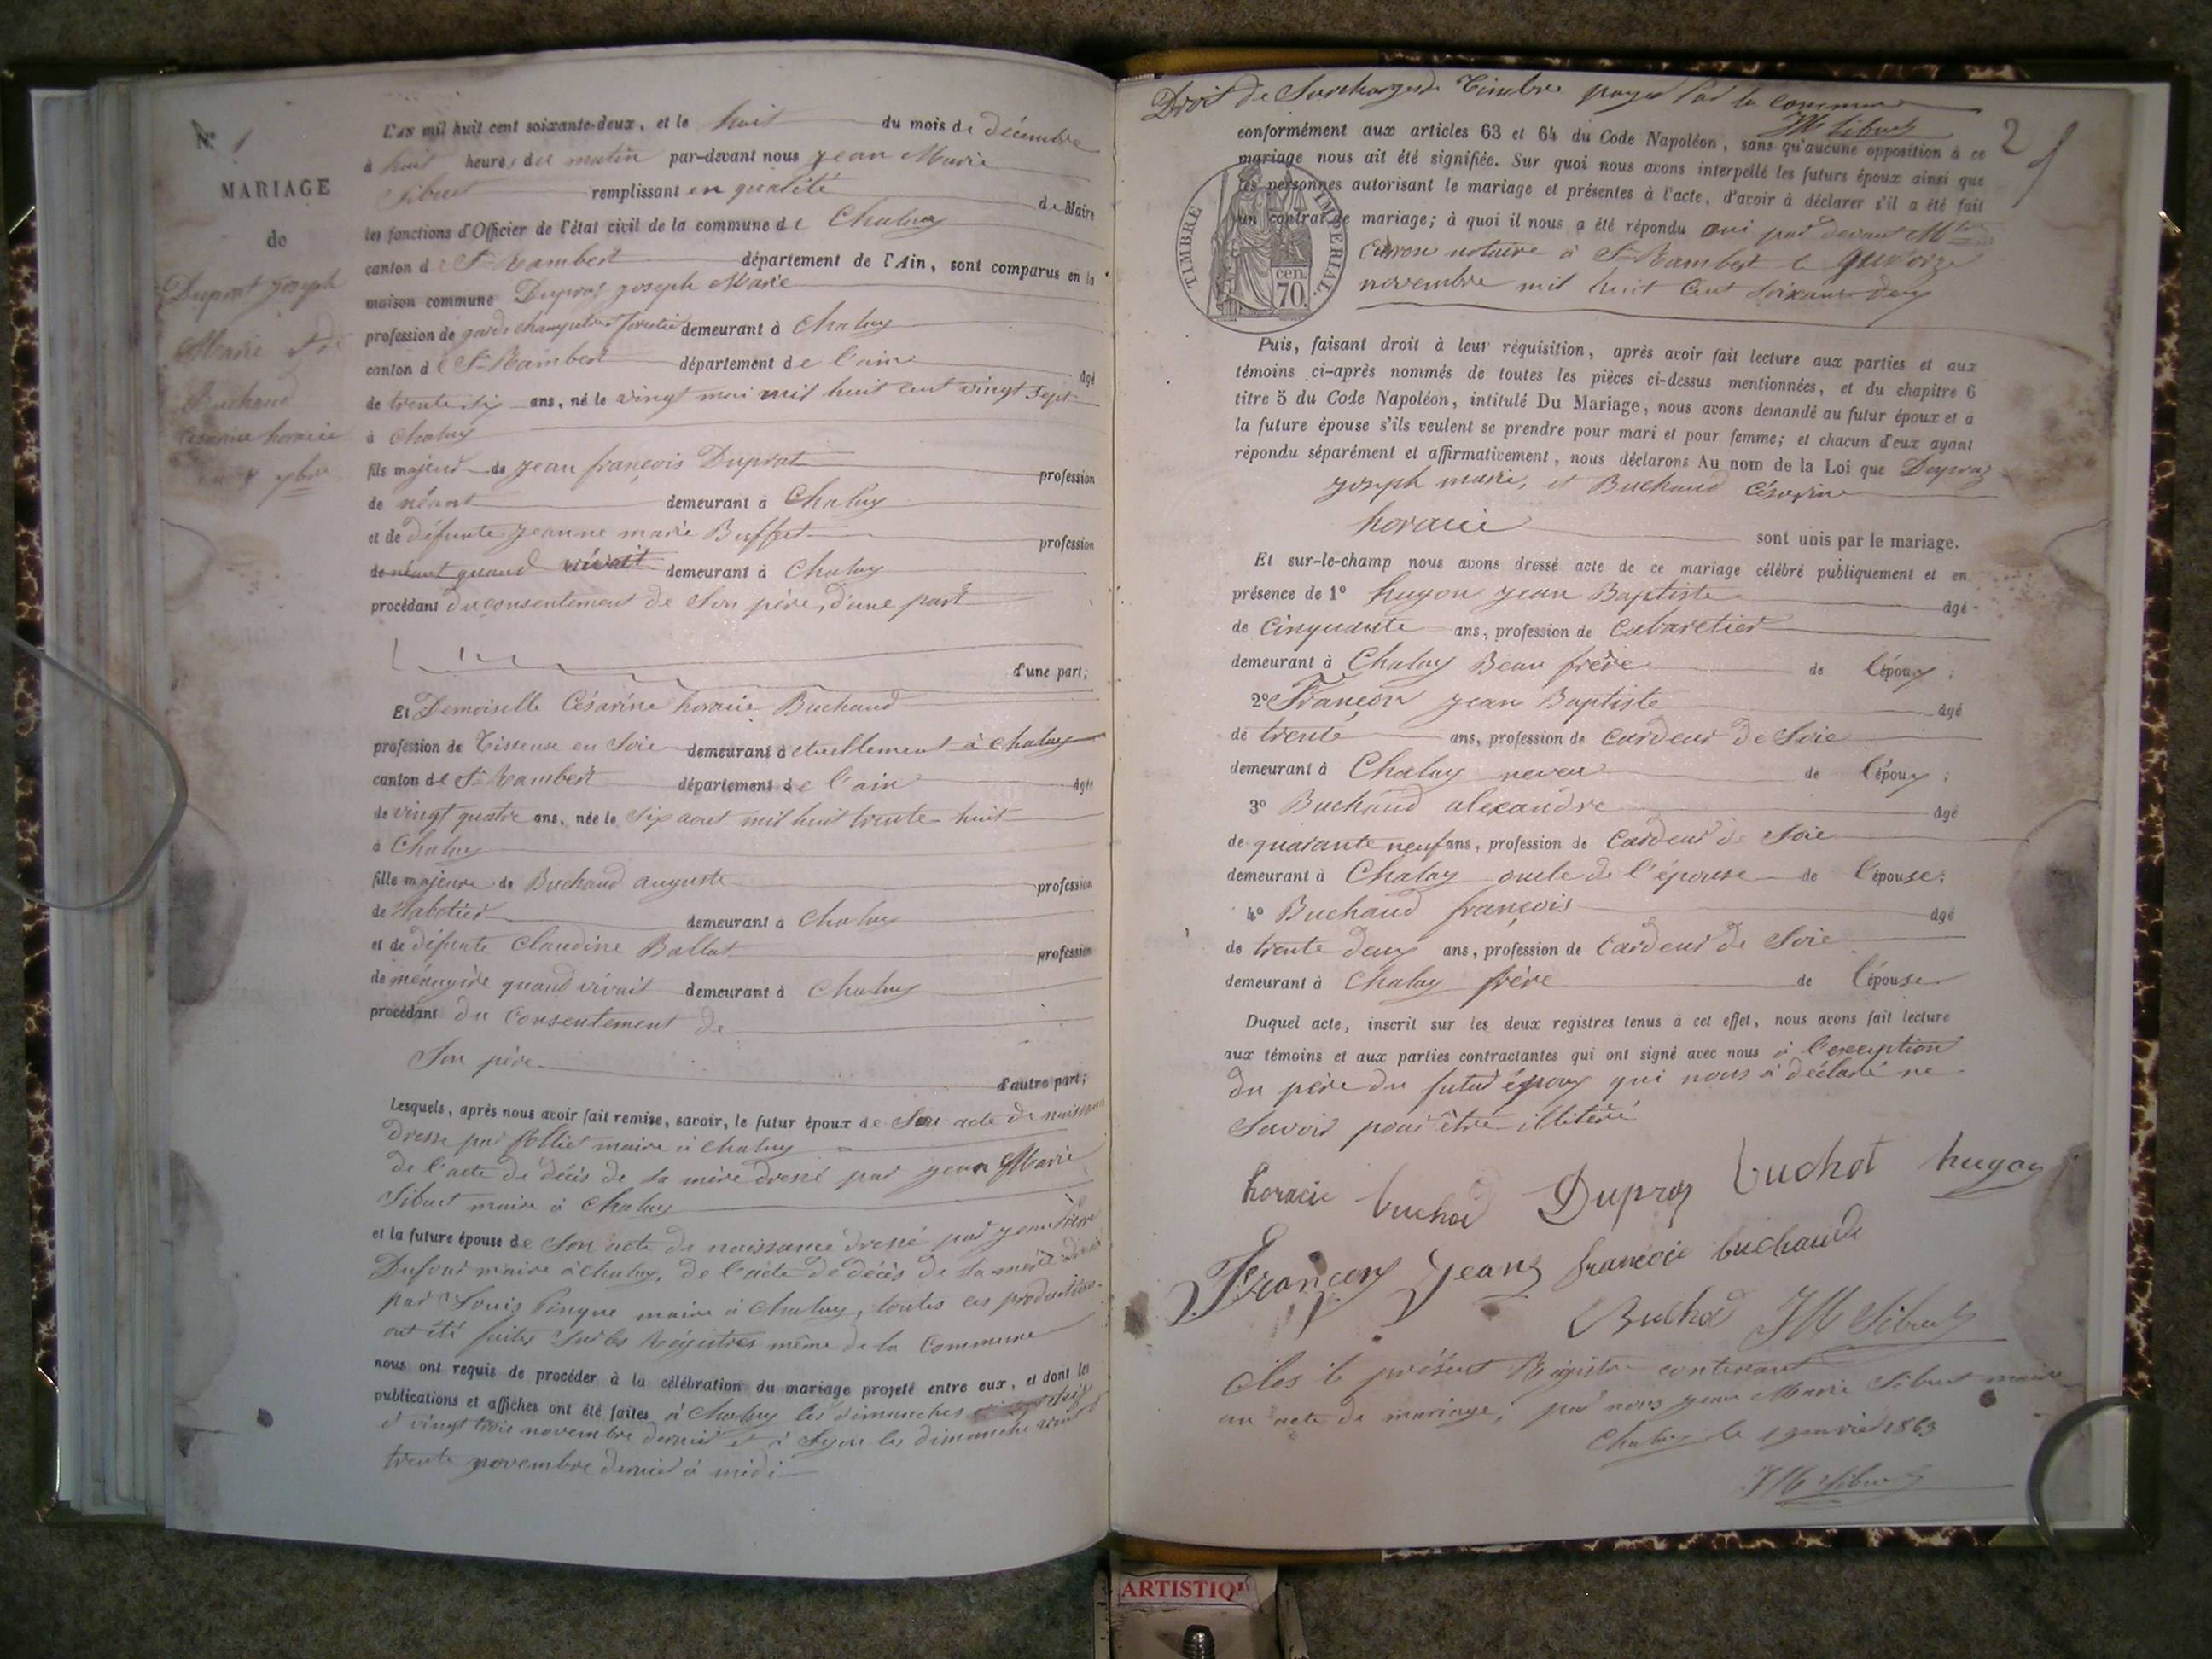 N° 1
MARIAGE
de
Duprat Joseph
Marie et de
Buchaud
Césarine horacie
L'AN mil huit cent soixante-deux, et le huit du mois de décembre
à huit heures du matin par-devant nous Jean Marie
Sibuet remplissant en qualité de Maire
les fonctions d'Officier de l'état civil de la commune de Chaley
canton de St Rambert département de l'Ain, sont comparus en la
maison commune Dupraz Joseph Marie
profession de garde champetre forestier demeurant à Chaley
canton de St Rambert département de l'ain âgé
de trente six ans, né le vingt mai mil huit cent vingt sept
à Chaley
fils majeur de Jean françois Duprat profession
de néant demeurant à Chaley
et de défunte Jeanne marie Buffet profession
de néant quand vivait demeurant à Chaley
procédant du consentement de Son père, d'une part
d'une part;
Et Demoiselle Césarine horacie Buchaud
profession de Tisseuse en Soie demeurant actuellement à Chaley
canton de St Rambert département de l'ain âgée
de vingt quatre ans, née le Six aout mil huit trente huit
à Chaley
fille majeure de Buchaud auguste profession
de Sabotier demeurant à Chaley
et de défunte Claudine Ballat profession
de ménagère quand vivait demeurant à Chaley
procédant du Consentement de
Son père
d'autre part;
Lesquels, après nous avoir fait remise, savoir, le futur époux de Son acte de naissance
dressé par maire à Chaley
de l'acte de décès de sa mère dressé par Jean Marie
Sibuet maire à Chaley
et la future épouse de Son acte de naissance dressé par Jean Pierre
Dufour maire à Chaley, de l'acte de décès de sa mère dressé
par Louis maire à Chaley, toutes ces productions
ont été faites sur les Régistres même de la Commune
nous ont requis de procéder à la célébration du mariage projeté entre eux, et dont les
publications et affiches ont été faites à Chaley les dimanches seize
et vingt trois novembre dernier et à Lyon les dimanche
trente novembre dernier à midi
Droit de Surcharge de Timbre payé par la commune
JM Sibuet
2
conformément aux articles 63 et 64 du Code Napoléon, sans qu'aucune opposition à ce
mariage nous ait été signifiée. Sur quoi nous avons interpellé les futurs époux ainsi que
les personnes autorisant le mariage et présentes à l'acte, d'avoir à déclarer s'il a été fait
un contrat de mariage; à quoi il nous a été répondu oui par devant Mtre
notaire à St Rambert le quatorze
novembre mil huit Cent Soixante deux
TIMBRE IMPERIAL
70 cen.
Puis, faisant droit à leur réquisition, après avoir fait lecture aux parties et aux
témoins ci-après nommés de toutes les pièces ci-dessus mentionnées, et du chapitre 6
titre 5 du Code Napoléon, intitulé Du Mariage, nous avons demandé au futur époux et à
la future épouse s'ils veulent se prendre pour mari et pour femme; et chacun d'eux ayant
répondu séparément et affirmativement, nous déclarons Au nom de la Loi que Dupraz
Joseph marie, et Buchaud Césarine
horacie
sont unis par le mariage.
Et sur-le-champ nous avons dressé acte de ce mariage célébré publiquement et en
présence de 1° hugon Jean Baptiste âgé
de Cinquante ans, profession de Cabaretier
demeurant à Chaley Beau frère de l'époux;
2° Françon Jean Baptiste âgé
de trente ans, profession de Cardeur de Soie
demeurant à Chaley neveu de l'époux;
3° Buchaud alexandre âgé
de quarante neuf ans, profession de Cardeur de Soie
demeurant à Chaley oncle de l'épouse de l'épouse;
4° Buchaud françois âgé
de trente deux ans, profession de Cardeur de Soie
demeurant à Chaley frère de l'épouse
Duquel acte, inscrit sur les deux registres tenus à cet effet, nous avons fait lecture
aux témoins et aux parties contractantes qui ont signé avec nous à l'exception
du père du futur époux qui nous à déclaré ne
Savoir pour être illitéré
horacie buchod Dupraz buchot hugon
Françon Jean françois buchaud
Buchod JM Sibuet
Clos le présent Régistre contenant
un acte de mariage, par nous Jean Marie Sibuet maire
Chaley le 1 janvier 1863
JM Sibuet
ARTISTIQU